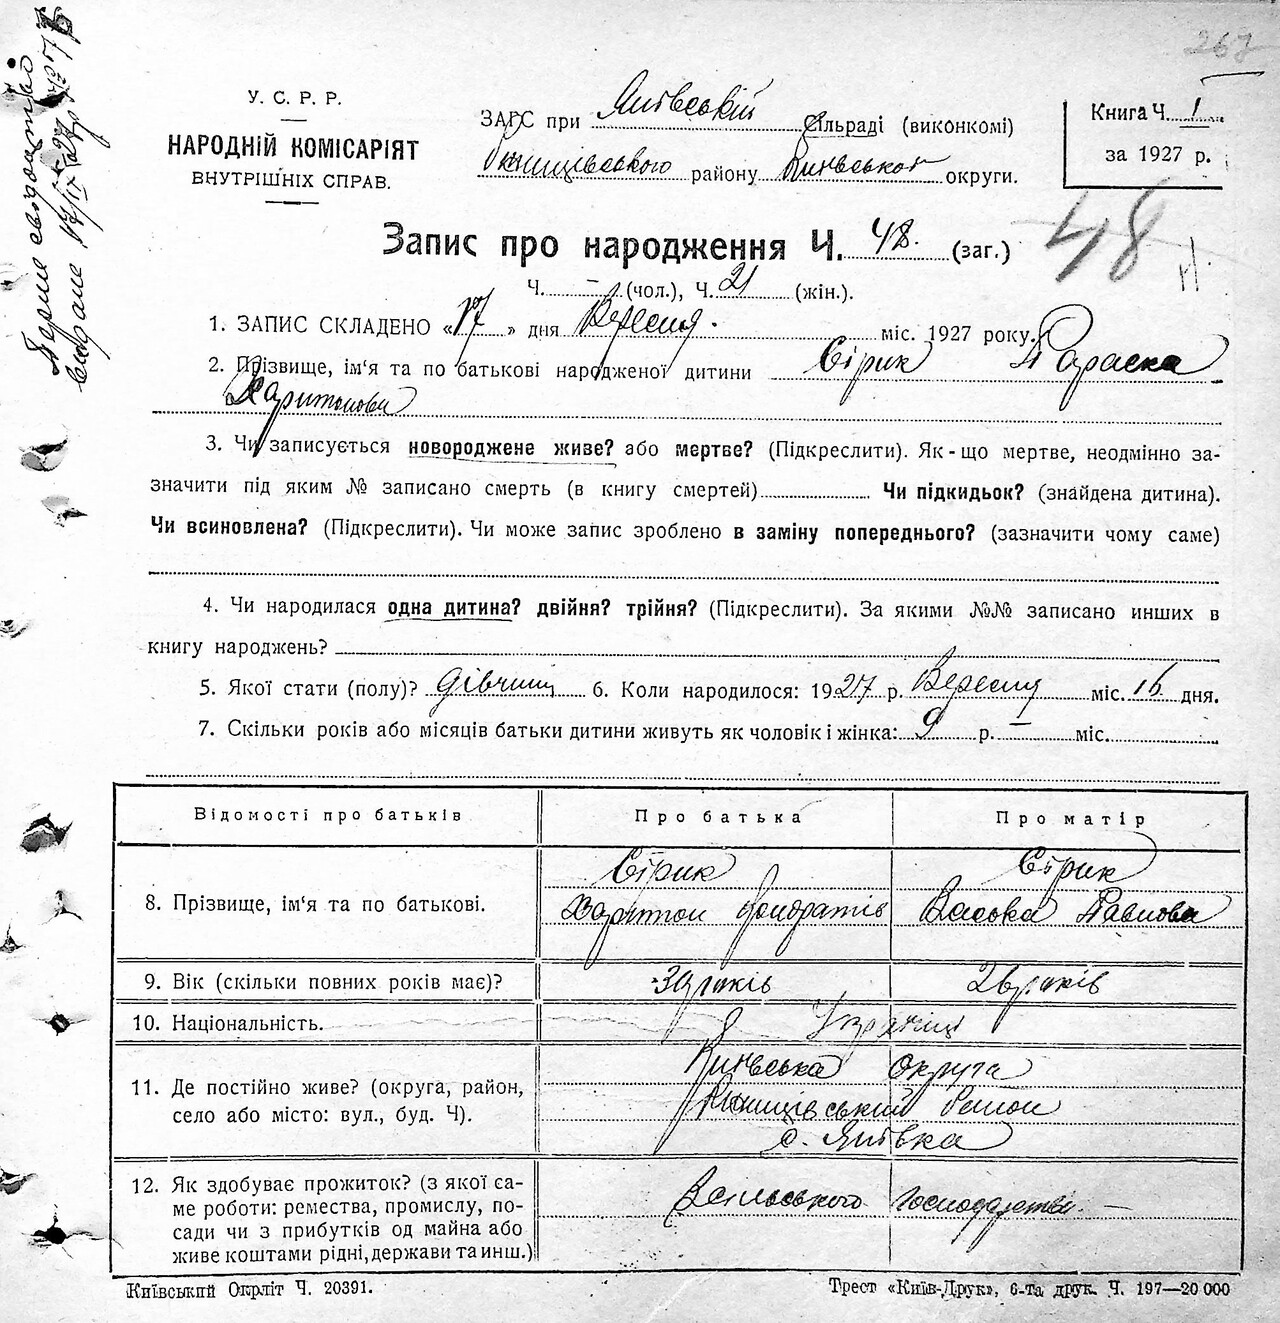 267
Перше свідоцтво
видане 17/IX 27 р.
У. С. Р. Р.
НАРОДНІЙ КОМІСАРІЯТ
ВНУТРІШНІХ СПРАВ.
ЗАГС при Янівській сільраді (виконкомі)
району Київської округи.
Книга Ч. 1
за 1927 р.
Запис про народження Ч. 48. (заг.)
48
Ч. – (чол.), Ч. 21 (жін.).
1. ЗАПИС СКЛАДЕНО «17» дня Вересня міс. 1927 року.
2. Прізвище, ім'я та по батькові народженої дитини Сірик Параска
Харитонова
3. Чи записується новороджене живе? або мертве? (Підкреслити). Як-що мертве, неодмінно за-
значити під яким № записано смерть (в книгу смертей) Чи підкидьок? (знайдена дитина).
Чи всиновлена? (Підкреслити). Чи може запис зроблено в заміну попереднього? (зазначити чому саме)
4. Чи народилася одна дитина? двійня? трійня? (Підкреслити). За якими №№ записано инших в
книгу народжень?
5. Якої стати (полу)? дівчина 6. Коли народилося: 1927 р. Вересня міс. 16 дня.
7. Скільки років або місяців батьки дитини живуть як чоловік і жінка: 9 р. – міс.
Відомості про батьків Про батька Про матір
8. Прізвище, ім'я та по батькові.
Сірик Сірик
Харитон Кондратів Васька Павлова
9. Вік (скільки повних років має)? років 28 років
10. Національність. Українці
11. Де постійно живе? (округа, район,
село або місто: вул., буд. Ч).
Київська округа
район
с. Янівка
12. Як здобуває прожиток? (з якої са-
ме роботи: ремества, промислу, по-
сади чи з прибутків од майна або
живе коштами рідні, держави та инш.)
господарства –
Київський Окрліт Ч. 20391.
Трест «Київ-Друк», 6-та друк. Ч. 197—20 000